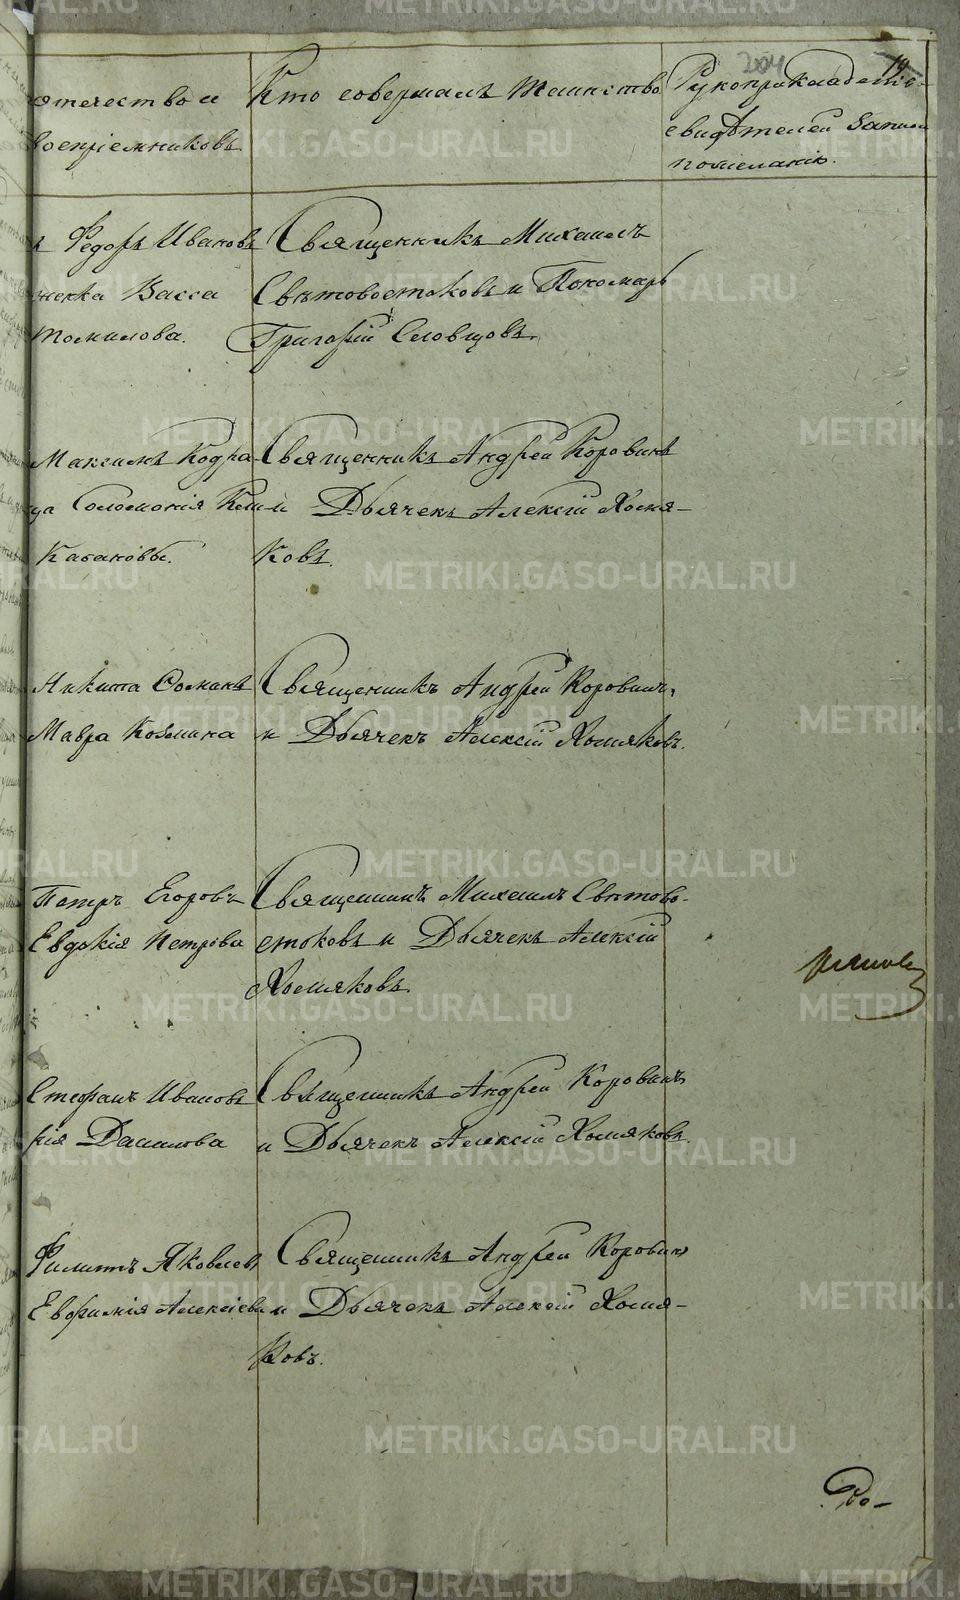 отечество и
воспріемниковъ
Кто совершалъ таинство
Рукоприкладствіе
свидѣтелей записи
по желанію.
204
ъ Федоръ Ивановъ
Васса
Томилова.
Священникъ Михаилъ
Свѣтовостоковъ и Пономарь
Григорій Словцовъ.
Максимъ Кодра
ца Соломонія Кли
Кабаковы.
Священникъ Андрей Коровинъ
и Дьячекъ Алексій Хомя-
ковъ.
Никита Фоминъ
Мавра Козмина
Священникъ Андрей Коровинъ,
и Дьячекъ Алексій Хомяковъ.
Петръ Егоровъ
Евдокія Петрова
Священникъ Михаилъ Свѣтово-
стоковъ и Дьячекъ Алексій
Хомяковъ.
Стефанъ Ивановъ
рія Данилова
Священникъ Андрей Коровинъ
и Дьячекъ Алексій Хомяковъ.
Филипъ Яковлевъ
Евфимія Алексіева
Священникъ Андрей Коровинъ
и Дьячекъ Алексій Хомя-
ковъ.
METRIKI.GASO-URAL.RU